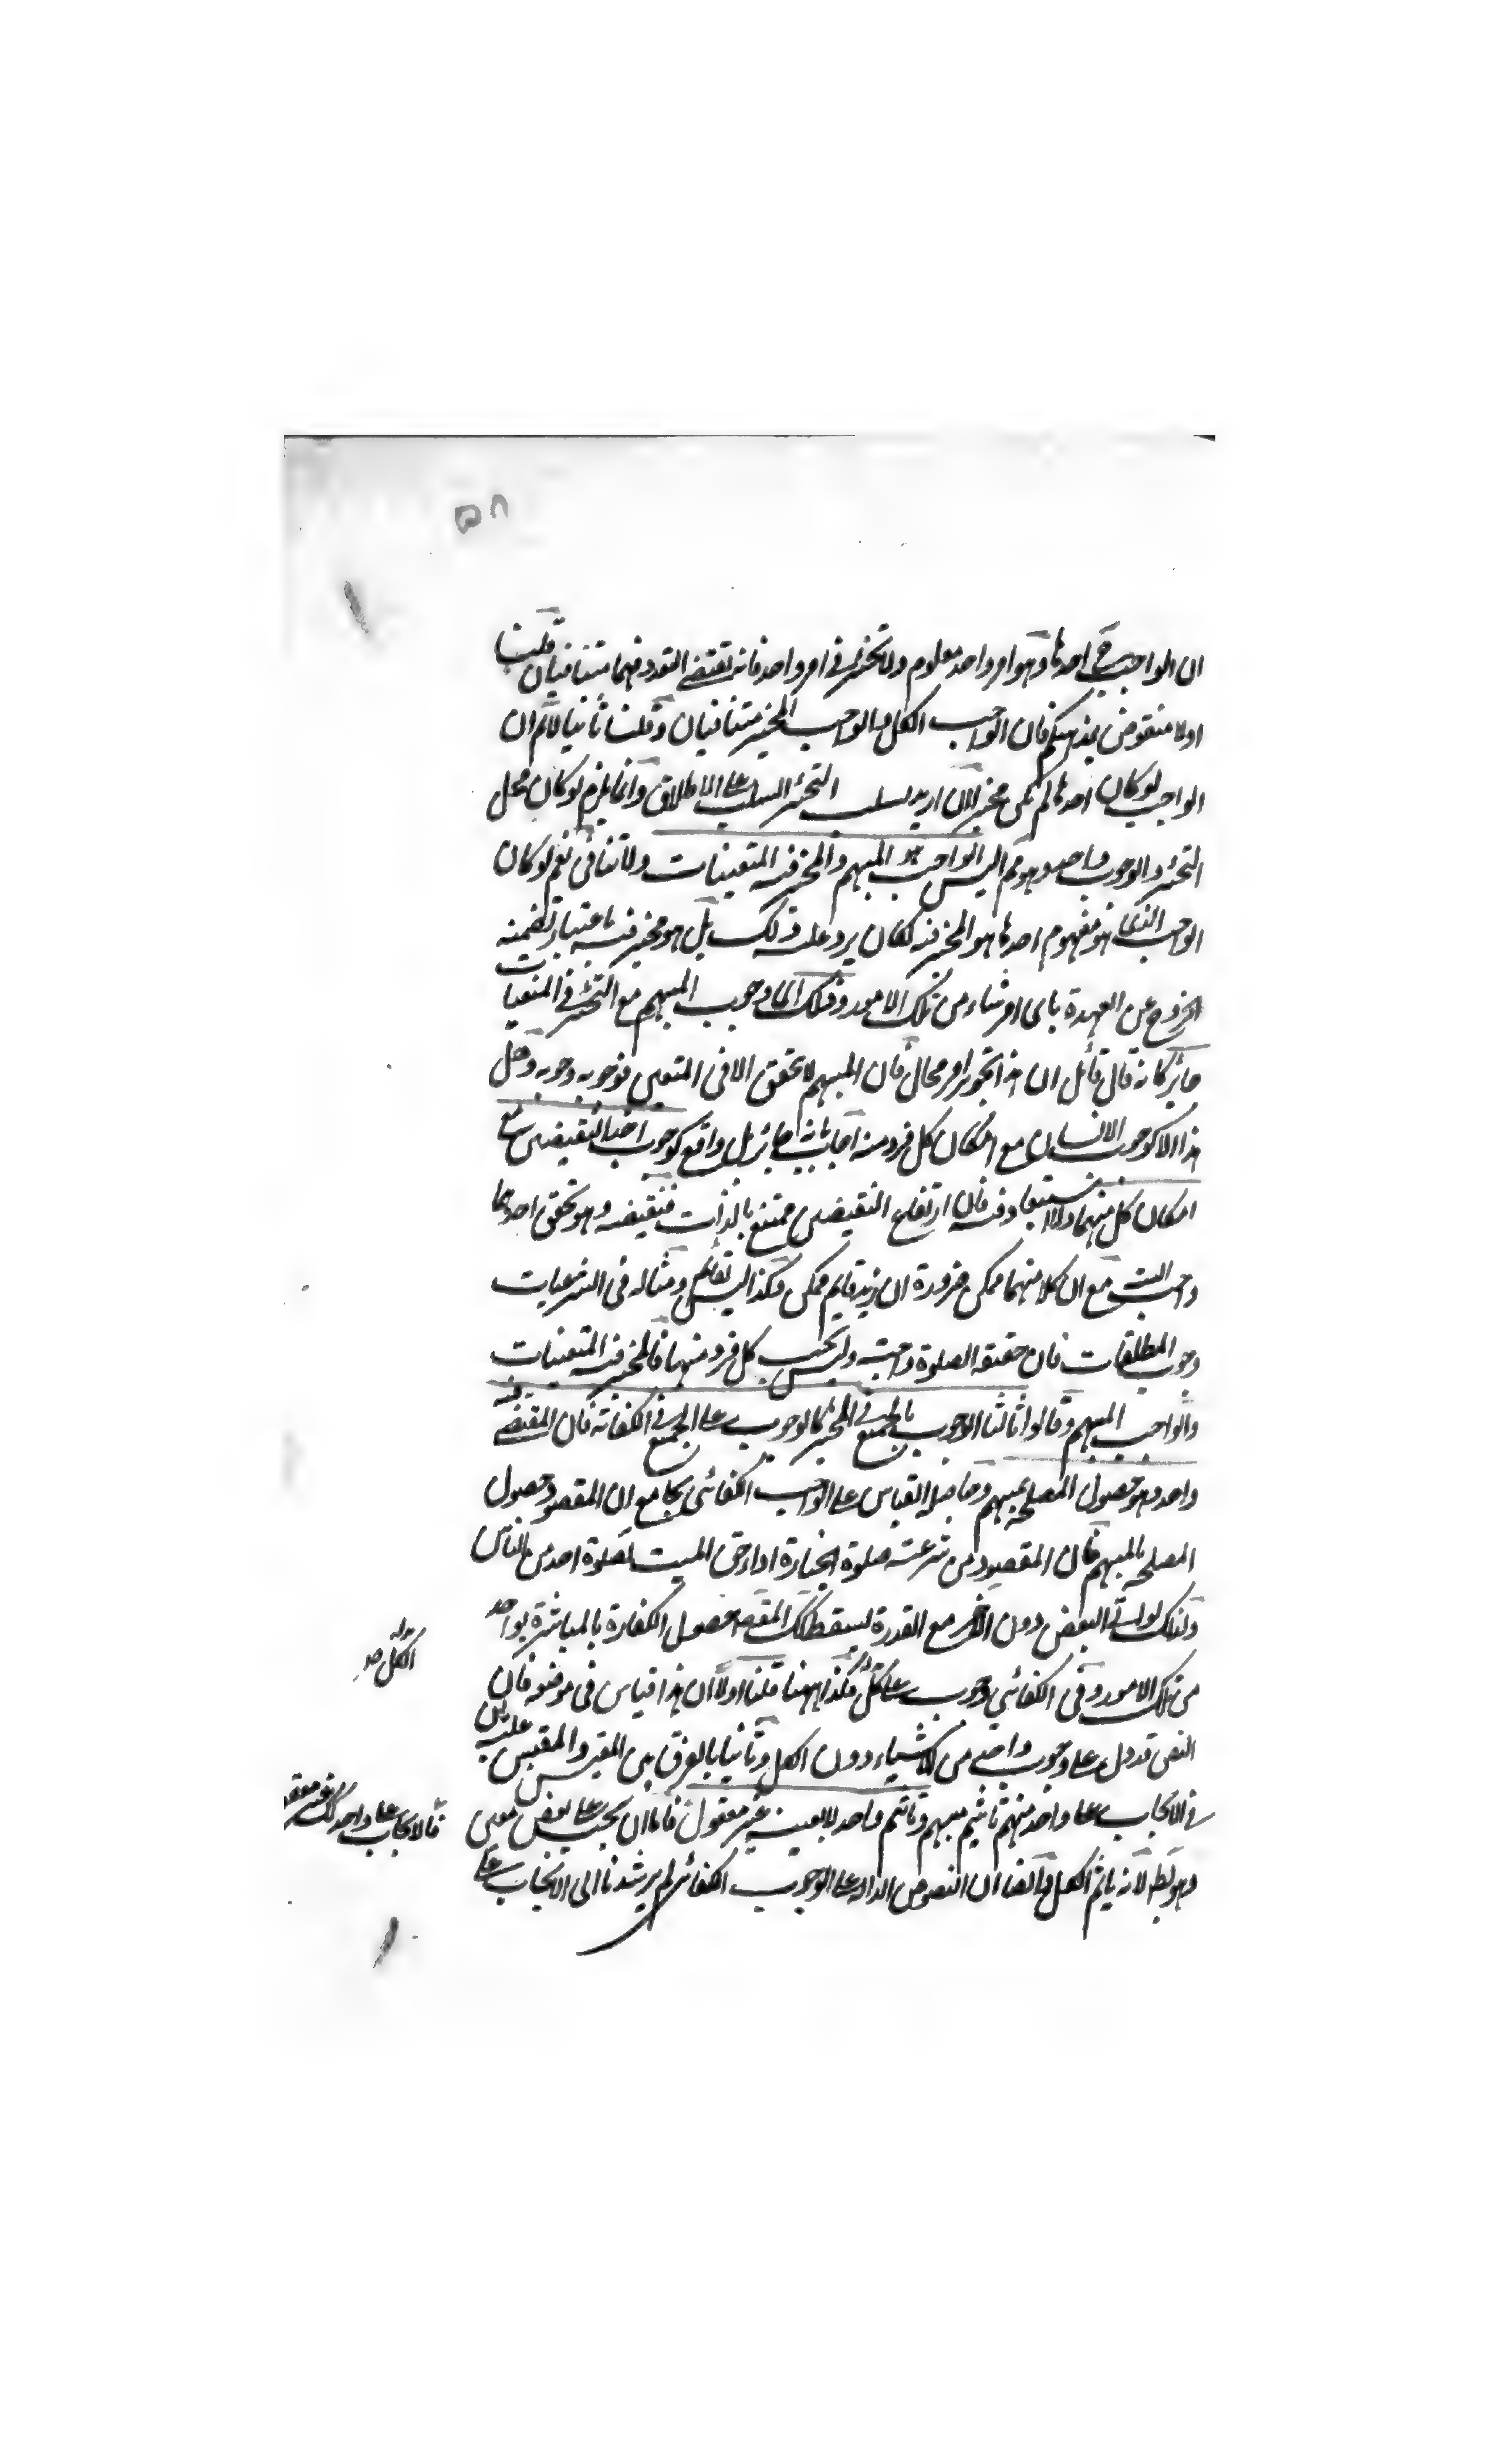 ان الواجب ح احدها وهو امر واحد معلوم ولا تخيير في امر واحد فانه يقتضي التعدد فهما متنافيان قلنا
اولا منقوض بمذهبكم فان الواجب الكل والواجب المخير متنافيان وقلنا ثانيا لانم ان
الواجب لو كان احدها لم يكن مخيرا لان اريد سلب التخيير السلب على الاطلاق وانما يلزم لو كان محل
التخيير والوجوب واحد وهو مم اليس الواجب هو المبهم والمخير فيه المتعينات ولا تنافي نعم لو كان
الواجب الذي هو مفهوم احدها هو المخير فيه لكان يرد عليه ذلك بل هو مخير فيه باعتبار تضمنه
الخروج عن العهدة باى امر شاء من تلك الامور وذلك اى وجوب المبهم مع التخيير في المتعينات
جائز كانه قال قائل ان هذا تجويز امر محال فان المبهم لا يتحقق الا في المتعين فوجوبه وجوبه وهل
هذا الا كوجوب الانسان مع امكان كل فرد منه اجاب بانه جائز بل واقع كوجوب احد النقيضين مع
امكان كل منهما ولا استبعاد فيه فان ارتفاع النقيضين ممتنع بالذات فنقيضه وهو تحقق احدهما
واجب البتة مع ان كلا منهما ممكن ضرورة ان زيد قايم ممكن وكذا ليس بقائم ومثاله في الشرعيات
وجوب المطلقات فان حقيقة الصلوة واجبة وليس يجب كل فرد منها فالمخير فيه المتعينات
والواجب المبهم وقالوا ثالثا الوجوب بالجميع في المخير كالوجوب على الجميع في الكفاية فان المقتضى فيه
واحد وهو حصول المصلحة بمبهم وحاصله القياس على الواجب الكفائي بجامع ان المقصود حصول
المصلحة بالمبهم فان المقصود من شرعية صلوة الجنازة اداء حق الميت بصلوة احد من الناس
ولذلك لو اتى البعض دون الآخر مع القدرة يسقط كك المقصود حصول الكفارة بالمباشرة بواحد
من تلك الامور وفي الكفائي وجوب على كل فكذا ههنا قلنا اولا ان هذا قياس في موضعه فان
النص قد دل على وجوب واحد من الاشياء دون الكل وثانيا بالفرق بين المقيس والمقيس عليه بان
في الايجاب على واحد منهم تاثيم مبهم وتاثيم واحد لا بعينه غير معقول فاما ان يجب على بعض معين
وهو بط لانه ياثم الكل وايضا ان النصوص الدالة على الوجوب الكفائي لم يرشدنا الى الايجاب على
الكل
فالايجاب على واحد كك غير معقول